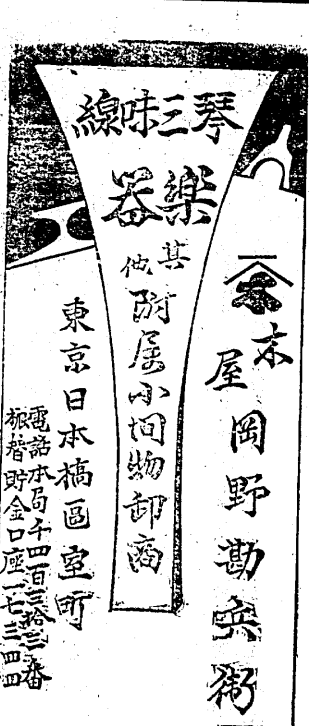 琴三味線
楽器
其他
附属小間物卸商
末
屋
岡野勘兵衛
東京日本橋區室町
電話本局千四百三拾三番
振替貯金口座一七三四四